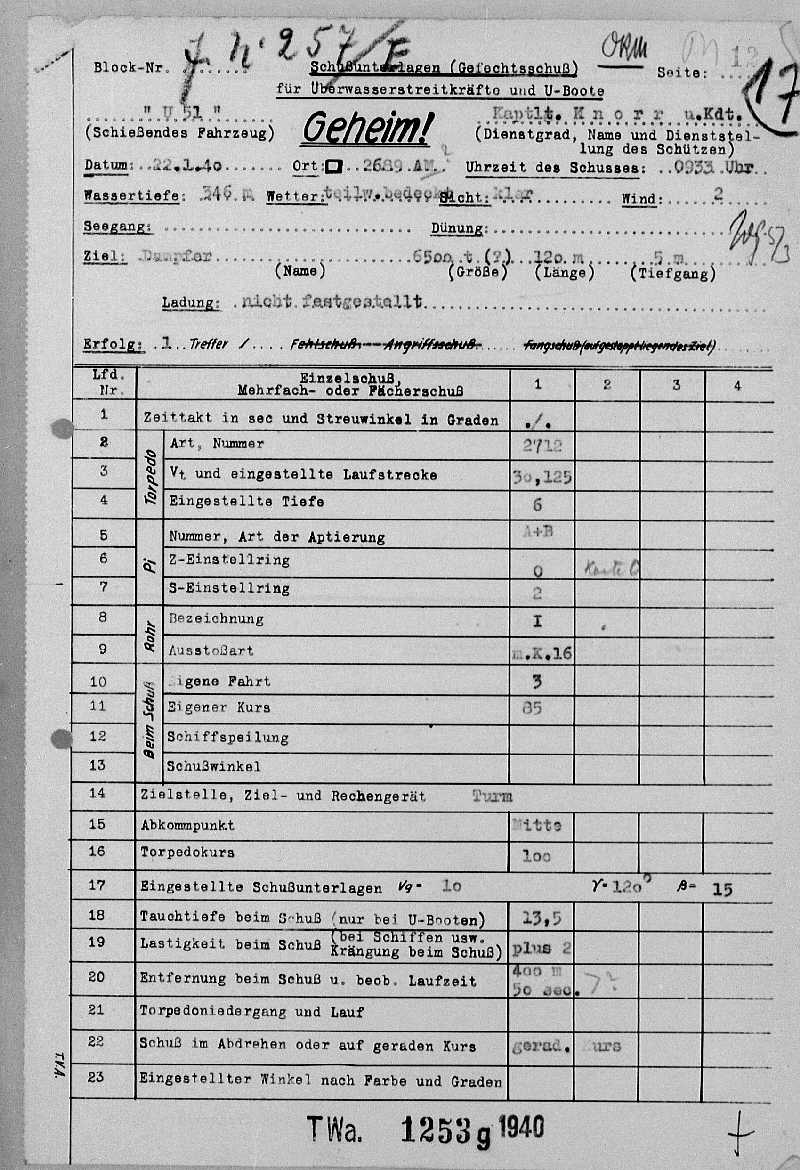 257/E OKM 12
Block-Nr. Schußunterlagen (Gefechtsschuß) Seite: 17
für Überwasserstreitkräfte und U-Boote
" U 51 " Kaptlt. K n o r r u.Kdt.
(Schießendes Fahrzeug) Geheim! (Dienstgrad, Name und Dienststel-
lung des Schützen)
Datum: 22.1.40 Ort: 2689 AM Uhrzeit des Schusses: 0933 Uhr
Wassertiefe: 346 m Wetter: teilw.bedeckt Sicht: klar Wind: 2
Seegang: Dünung:
Ziel: Dampfer 6500 t (?) 120 m 5 m
(Name) (Größe) (Länge) (Tiefgang)
Ladung: nicht festgestellt
Erfolg: 1 Treffer / Fehlschuß Angriffsschuß Fangschuß (auf gestoppt liegendes Ziel)
Lfd. Nr. Einzelschuß, Mehrfach- oder Fächerschuß 1 2 3 4
1 Zeittakt in sec und Streuwinkel in Graden ./.
Torpedo
2 Art, Nummer 2712
3 Vt und eingestellte Laufstrecke 30,125
4 Eingestellte Tiefe 6
Pi
5 Nummer, Art der Aptierung A+B
6 Z-Einstellring 0 Karte
7 S-Einstellring 2
Rohr
8 Bezeichnung I
9 Ausstoßart m.K.16
Beim Schuß
10 Eigene Fahrt 3
11 Eigener Kurs 85
12 Schiffspeilung
13 Schußwinkel
14 Zielstelle, Ziel- und Rechengerät Turm
15 Abkommpunkt Mitte
16 Torpedokurs 100
17 Eingestellte Schußunterlagen Vg= 10 γ=120° β= 15
18 Tauchtiefe beim Schuß (nur bei U-Booten) 13,5
19 Lastigkeit beim Schuß (bei Schiffen usw. Krängung beim Schuß) plus 2
20 Entfernung beim Schuß u. beob. Laufzeit 400 m
50 sec. ?
21 Torpedoniedergang und Lauf
22 Schuß im Abdrehen oder auf geraden Kurs gerad. Kurs
23 Eingestellter Winkel nach Farbe und Graden
TVA.
TWa. 1253g 1940